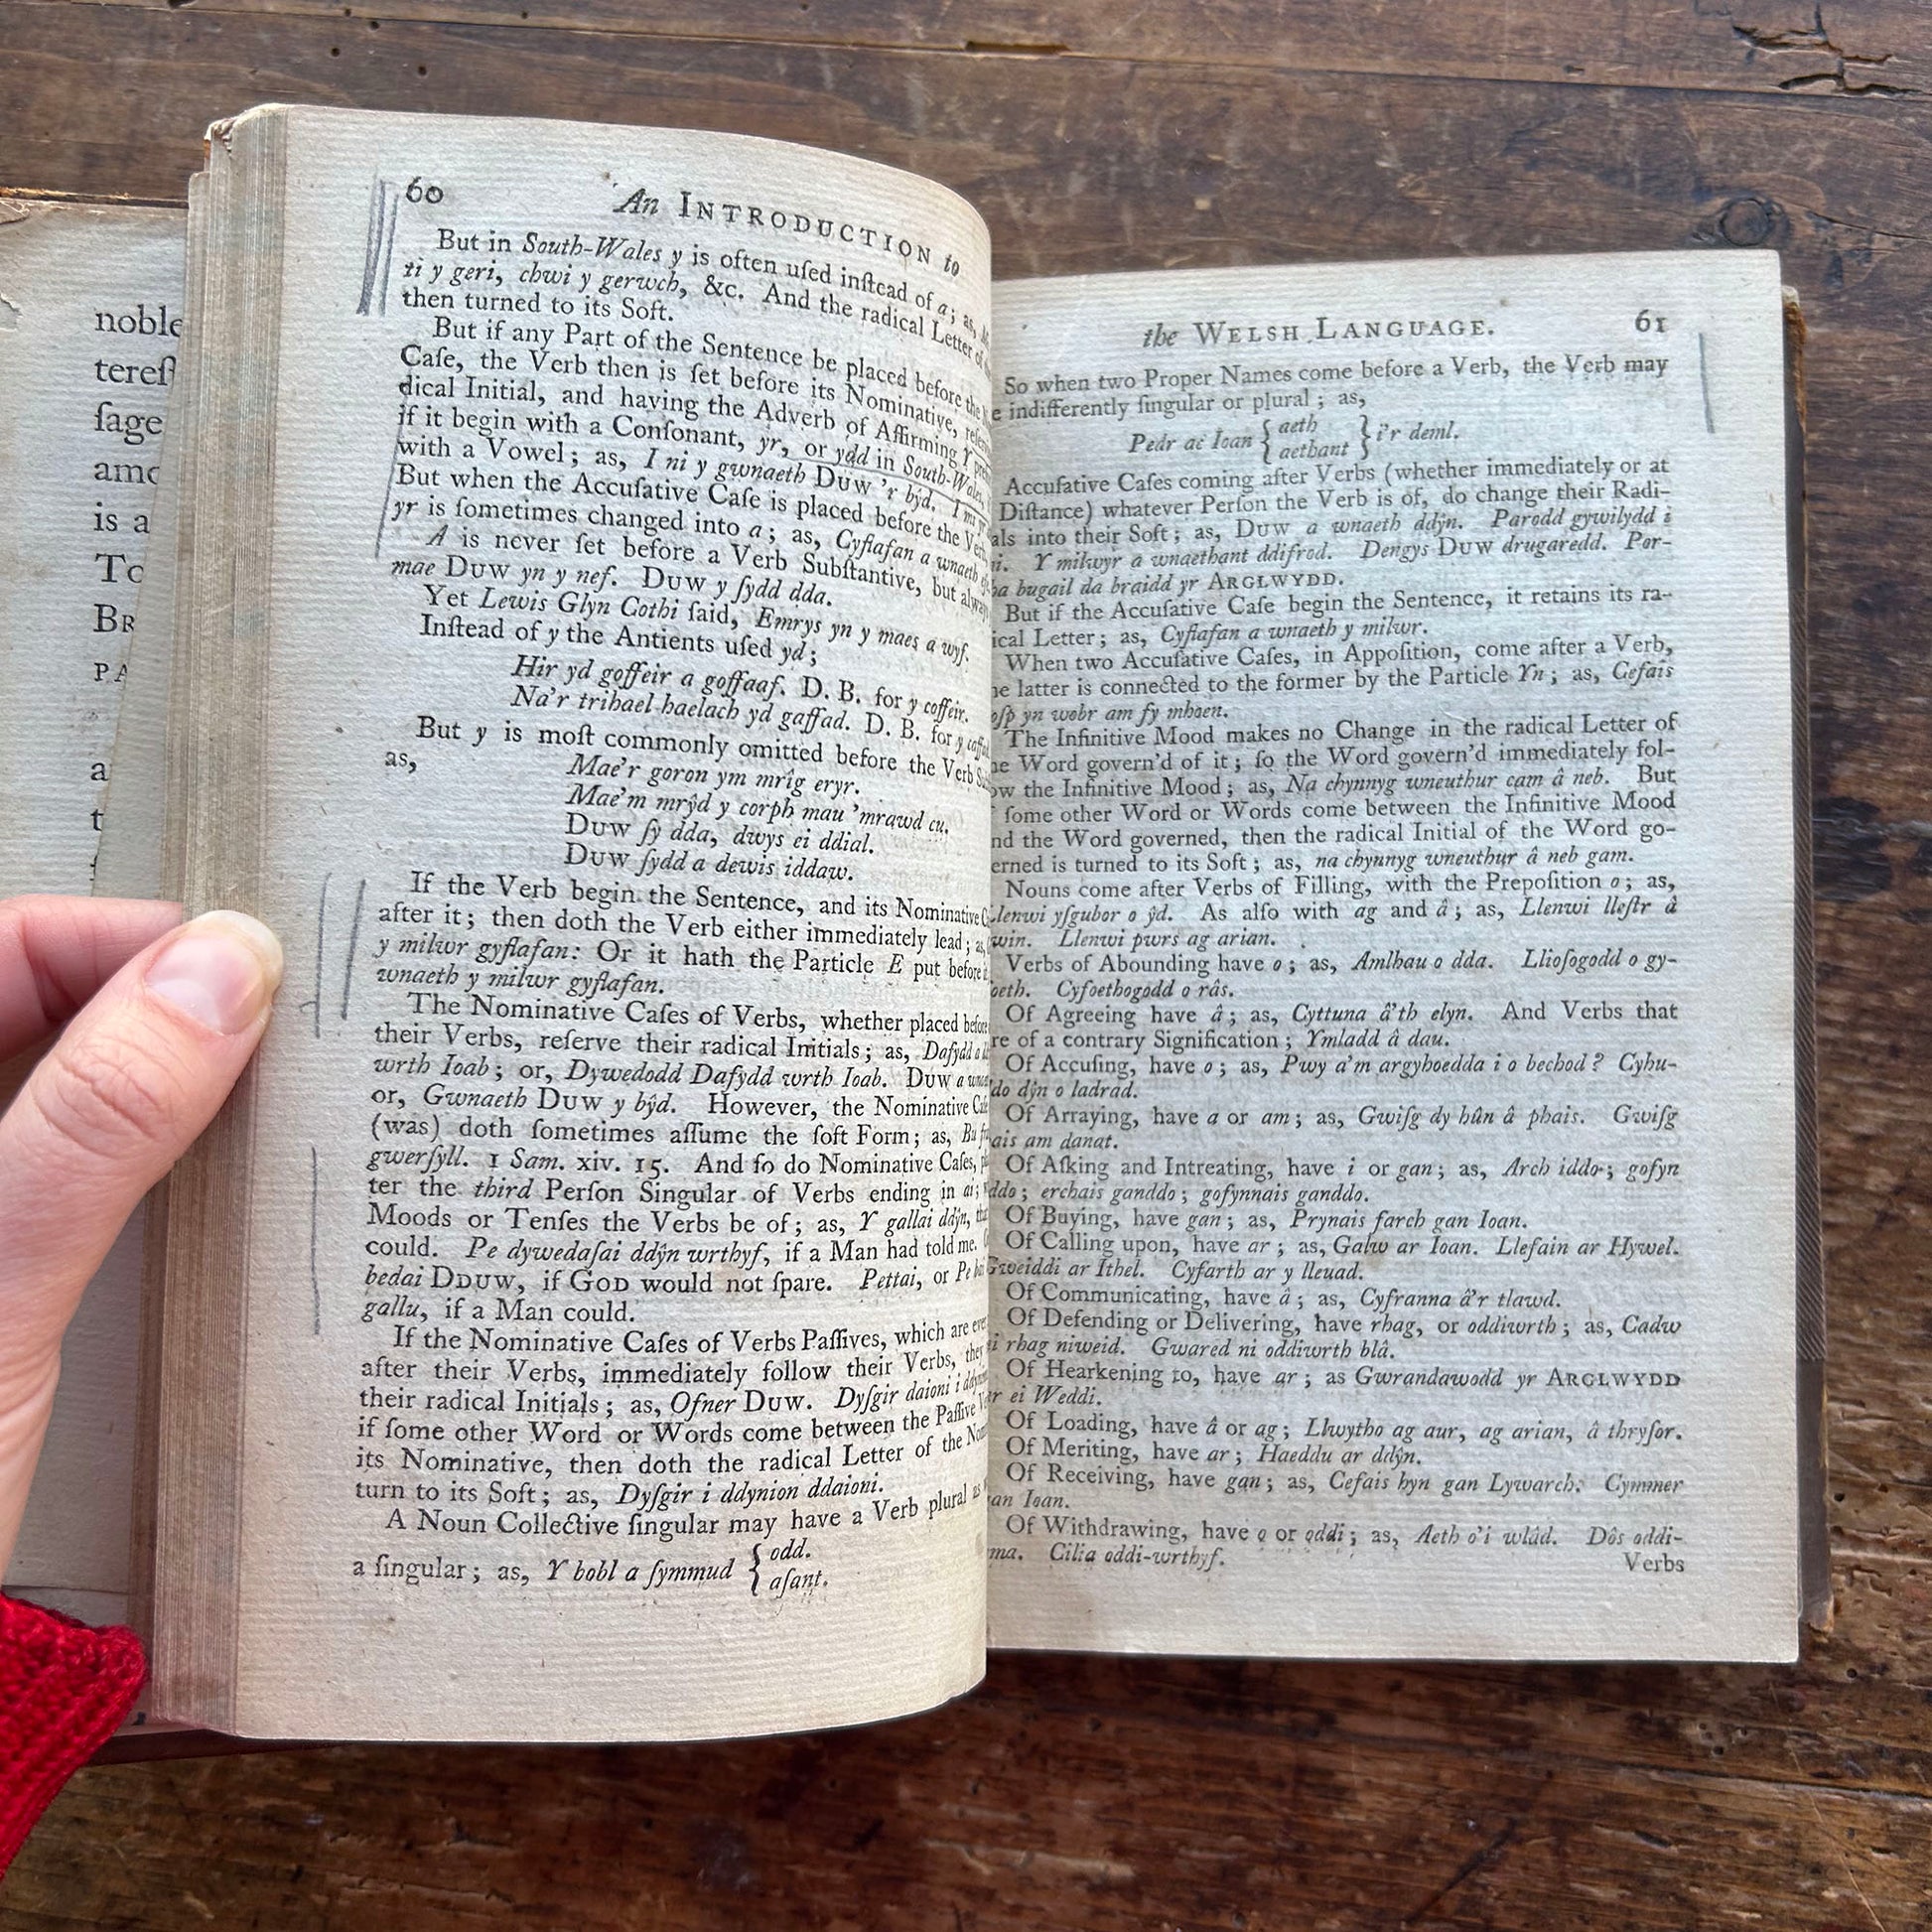 noble
tereſ
ſage
amo
is a
To
Br
PA
a
t
60 An INTRODUCTION to
But in South-Wales y is often uſed inſtead of a; as,
ti y geri, chwi y gerwch, &c. And the radical Letter of
then turned to its Soft.
But if any Part of the Sentence be placed before the
Caſe, the Verb then is ſet before its Nominative,
dical Initial, and having the Adverb of Affirming Y
if it begin with a Conſonant, yr, or ydd in South-Wales,
with a Vowel; as, I ni y gwnaeth DUW 'r bŷd. I ni
But when the Accuſative Caſe is placed before the
yr is ſometimes changed into a; as, Cyflafan a wnaeth
A is never ſet before a Verb Subſtantive, but always
mae DUW yn y nef. DUW y ſydd dda.
Yet Lewis Glyn Cothi ſaid, Emrys yn y maes a wyf.
Inſtead of y the Antients uſed yd;
Hir yd goffeir a goffaaf. D. B. for y coffeir.
Na'r trihael haelach yd gaffad. D. B. for y
But y is moſt commonly omitted before the Verb
as,
Mae'r goron ym mrîg eryr.
Mae'm mrŷd y corph mau 'mrawd cu.
DUW ſy dda, dwys ei ddial.
DUW ſydd a dewis iddaw.
If the Verb begin the Sentence, and its Nominative
after it; then doth the Verb either immediately lead; as,
y milwr gyflafan: Or it hath the Particle E put before
wnaeth y milwr gyflafan.
The Nominative Caſes of Verbs, whether placed before
their Verbs, reſerve their radical Initials; as, Dafydd a
wrth Ioab; or, Dywedodd Dafydd wrth Ioab. DUW a
or, Gwnaeth DUW y bŷd. However, the Nominative
(was) doth ſometimes aſſume the ſoft Form; as, Bu
gwerſyll. 1 Sam. xiv. 15. And ſo do Nominative Caſes,
ter the third Perſon Singular of Verbs ending in ai;
Moods or Tenſes the Verbs be of; as, Y gallai ddŷn,
could. Pe dywedaſai ddŷn wrthyf, if a Man had told me.
bedai DDUW, if GOD would not ſpare. Pettai, or Pe
gallu, if a Man could.
If the Nominative Caſes of Verbs Paſſives, which are
after their Verbs, immediately follow their Verbs, they
their radical Initials; as, Ofner DUW. Dyſgir daioni i
if ſome other Word or Words come between the Paſſive
its Nominative, then doth the radical Letter of the
turn to its Soft; as, Dyſgir i ddynion ddaioni.
A Noun Collective ſingular may have a Verb plural as
a ſingular; as, Y bobl a ſymmud { odd.
aſant.
the WELSH LANGUAGE. 61
So when two Proper Names come before a Verb, the Verb may
e indifferently ſingular or plural; as,
Pedr ac Ioan { aeth } i'r deml.
aethant
Accuſative Caſes coming after Verbs (whether immediately or at
Diſtance) whatever Perſon the Verb is of, do change their Radi-
als into their Soft; as, DUW a wnaeth ddŷn. Parodd gywilydd i
i. Y milwyr a wnaethant ddifrod. Dengys DUW drugaredd. Por-
ba bugail da braidd yr ARGLWYDD.
But if the Accuſative Caſe begin the Sentence, it retains its ra-
ical Letter; as, Cyflafan a wnaeth y milwr.
When two Accuſative Caſes, in Appoſition, come after a Verb,
he latter is connected to the former by the Particle Yn; as, Cefais
oſp yn wobr am fy mhoen.
The Infinitive Mood makes no Change in the radical Letter of
he Word govern'd of it; ſo the Word govern'd immediately fol-
ow the Infinitive Mood; as, Na chynnyg wneuthur cam â neb. But
ſome other Word or Words come between the Infinitive Mood
nd the Word governed, then the radical Initial of the Word go-
erned is turned to its Soft; as, na chynnyg wneuthur â neb gam.
Nouns come after Verbs of Filling, with the Prepoſition o; as,
Llenwi yſgubor o ŷd. As alſo with ag and â; as, Llenwi lleſtr â
win. Llenwi pwrs ag arian.
Verbs of Abounding have o; as, Amlhau o dda. Llioſogodd o gy-
oeth. Cyfoethogodd o râs.
Of Agreeing have â; as, Cyttuna â'th elyn. And Verbs that
re of a contrary Signification; Ymladd â dau.
Of Accuſing, have o; as, Pwy a'm argyhoedda i o bechod? Cyhu-
do dŷn o ladrad.
Of Arraying, have a or am; as, Gwiſg dy hûn â phais. Gwiſg
ais am danat.
Of Aſking and Intreating, have i or gan; as, Arch iddo; gofyn
ddo; erchais ganddo; gofynnais ganddo.
Of Buying, have gan; as, Prynais farch gan Ioan.
Of Calling upon, have ar; as, Galw ar Ioan. Llefain ar Hywel.
Gweiddi ar Ithel. Cyfarth ar y lleuad.
Of Communicating, have â; as, Cyfranna â'r tlawd.
Of Defending or Delivering, have rhag, or oddiwrth; as, Cadw
i rhag niweid. Gwared ni oddiwrth blâ.
Of Hearkening to, have ar; as Gwrandawodd yr ARGLWYDD
r ei Weddi.
Of Loading, have â or ag; Llwytho ag aur, ag arian, â thryſor.
Of Meriting, have ar; Haeddu ar ddŷn.
Of Receiving, have gan; as, Cefais hyn gan Lywarch. Cymmer
an Ioan.
Of Withdrawing, have o or oddi; as, Aeth o'i wlâd. Dôs oddi-
ma. Cilia oddi-wrthyf.
Verbs